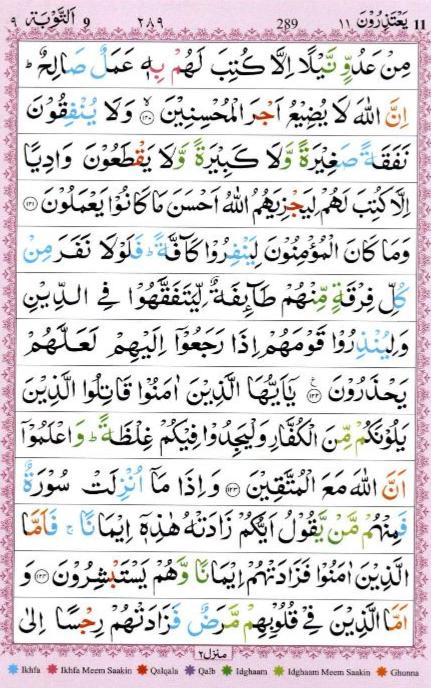 11 يَعْتَذِرُوْنَ ١١ 289 ٢٨٩ 9 اَلتَّوْبَة ٩
مِنْ عَدُوٍّ نَّيْلًا اِلَّا كُتِبَ لَهُمْ بِهٖ عَمَلٌ صَالِحٌ ؕ
اِنَّ اللّٰهَ لَا يُضِيْعُ اَجْرَ الْمُحْسِنِيْنَ ﴿۱۲۰﴾ۙ وَلَا يُنْفِقُوْنَ
نَفَقَةً صَغِيْرَةً وَّلَا كَبِيْرَةً وَّلَا يَقْطَعُوْنَ وَادِيًا
اِلَّا كُتِبَ لَهُمْ لِيَجْزِيَهُمُ اللّٰهُ اَحْسَنَ مَا كَانُوْا يَعْمَلُوْنَ ﴿۱۲۱﴾
وَمَا كَانَ الْمُؤْمِنُوْنَ لِيَنْفِرُوْا كَآفَّةً ؕ فَلَوْلَا نَفَرَ مِنْ
كُلِّ فِرْقَةٍ مِّنْهُمْ طَآئِفَةٌ لِّيَتَفَقَّهُوْا فِى الدِّيْنِ
وَلِيُنْذِرُوْا قَوْمَهُمْ اِذَا رَجَعُوْۤا اِلَيْهِمْ لَعَلَّهُمْ
يَحْذَرُوْنَ ﴿۱۲۲﴾ يٰۤاَيُّهَا الَّذِيْنَ اٰمَنُوْا قَاتِلُوا الَّذِيْنَ
يَلُوْنَكُمْ مِّنَ الْكُفَّارِ وَلْيَجِدُوْا فِيْكُمْ غِلْظَةً ؕ وَاعْلَمُوْۤا
اَنَّ اللّٰهَ مَعَ الْمُتَّقِيْنَ ﴿۱۲۳﴾ وَاِذَا مَاۤ اُنْزِلَتْ سُوْرَةٌ
فَمِنْهُمْ مَّنْ يَّقُوْلُ اَيُّكُمْ زَادَتْهُ هٰذِهٖۤ اِيْمَانًا ۚ فَاَمَّا
الَّذِيْنَ اٰمَنُوْا فَزَادَتْهُمْ اِيْمَانًا وَّهُمْ يَسْتَبْشِرُوْنَ ﴿۱۲۴﴾ وَ
اَمَّا الَّذِيْنَ فِيْ قُلُوْبِهِمْ مَّرَضٌ فَزَادَتْهُمْ رِجْسًا اِلٰى
منزل٢
Ikhfa Ikhfa Meem Saakin Qalqala Qalb Idghaam Idghaam Meem Saakin Ghunna